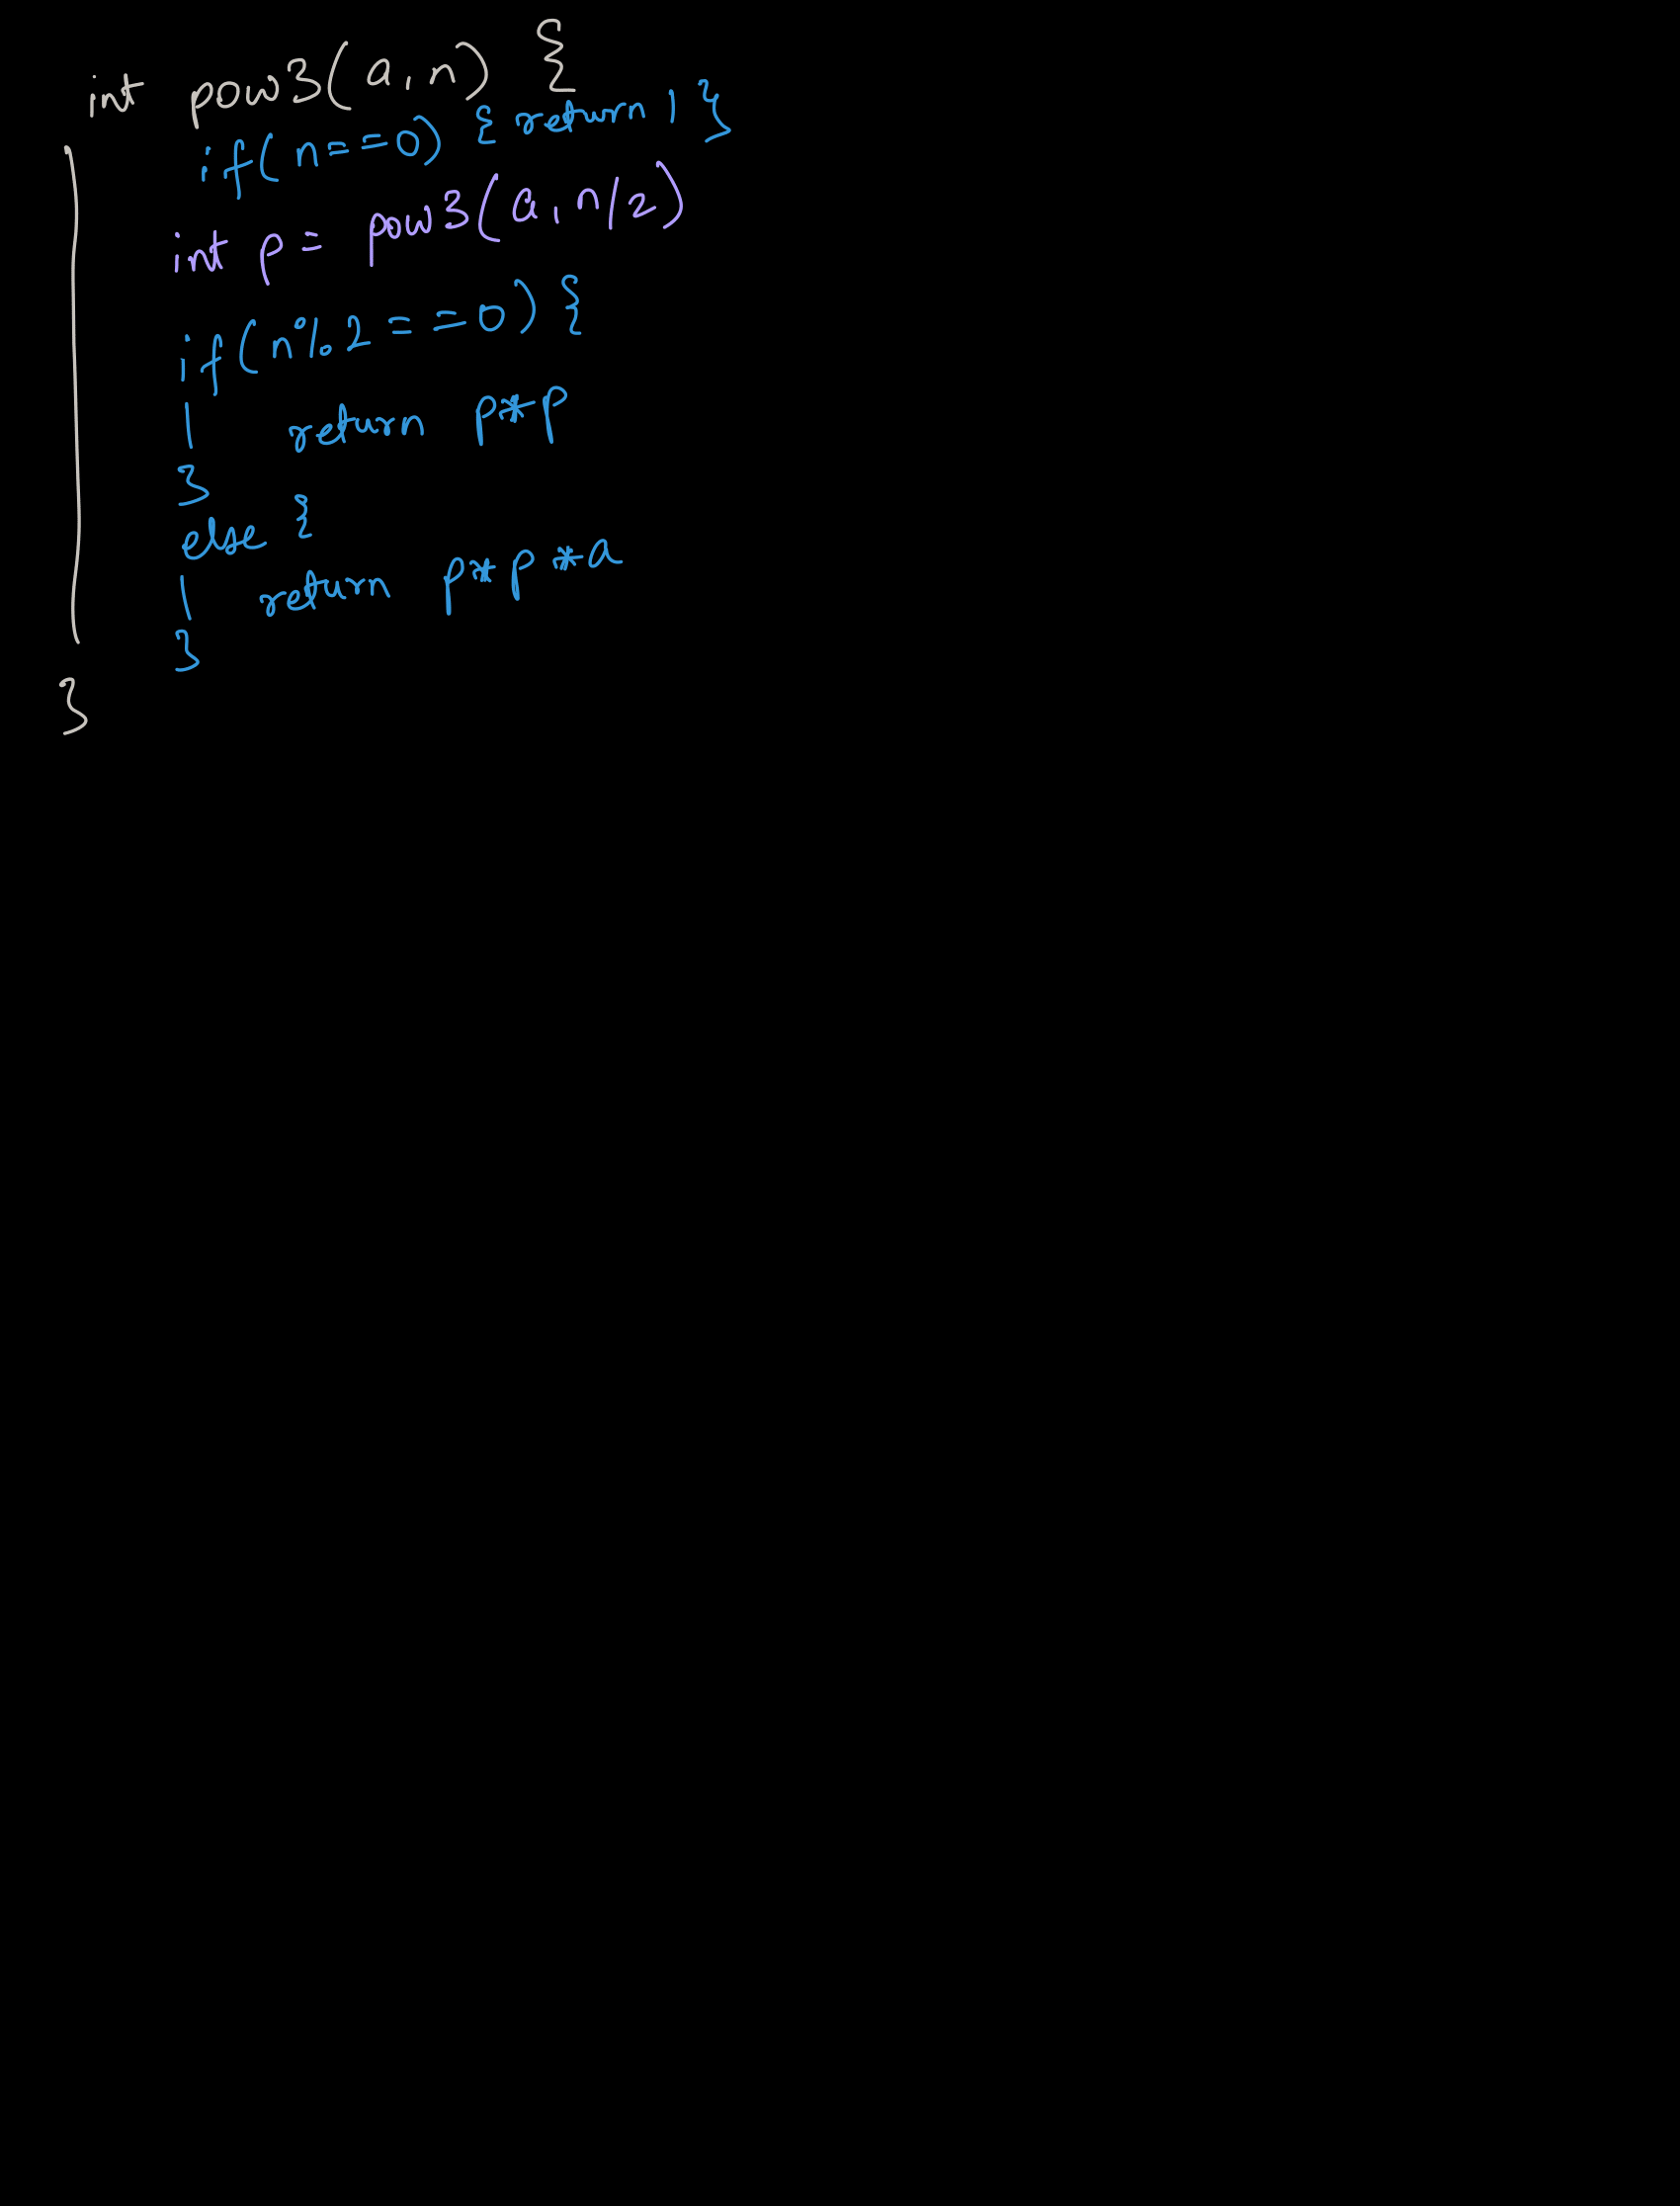 int pow3(a,n) {
if(n==0) {return 1}
int p = pow3(a, n/2)
if(n%2==0) {
return p*p
}
else {
return p*p*a
}
}